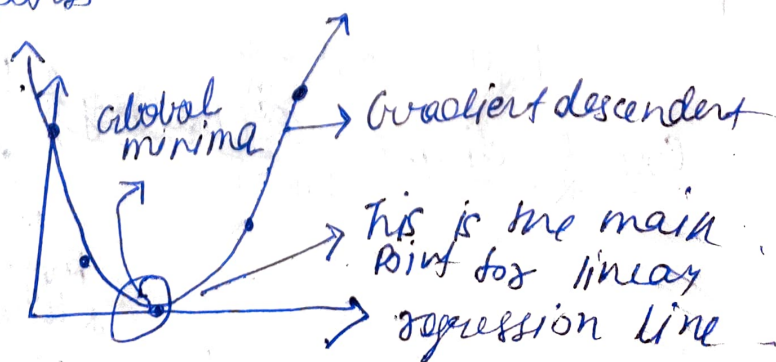 Global
minima
Gradient descendent
This is the main
point for linear
regression line